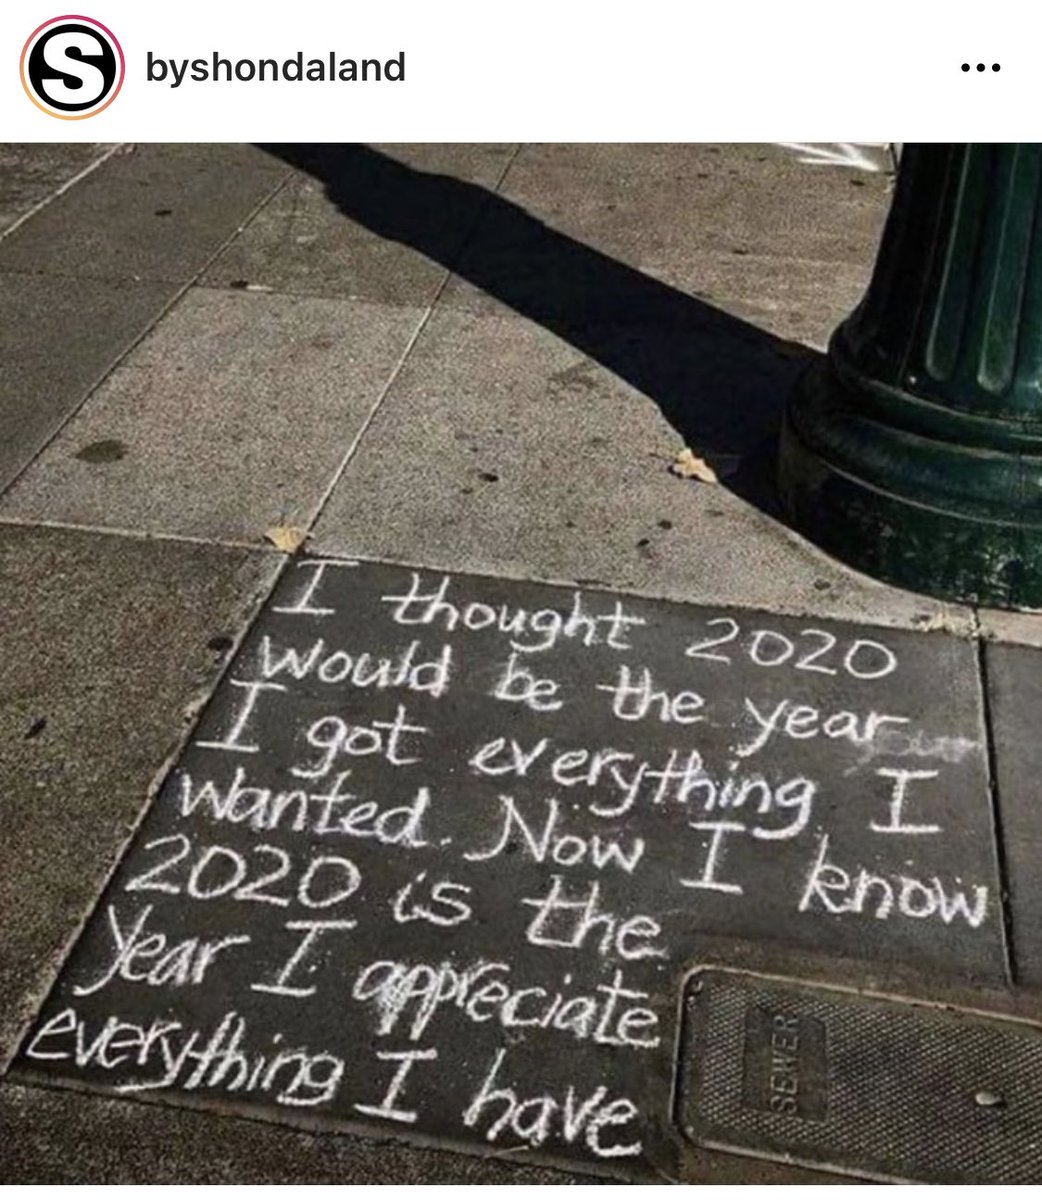 byshondaland
I thought 2020
Would be the year
I got everything I
Wanted. Now I know
2020 is the
Year I appreciate
everything I have
SEWER